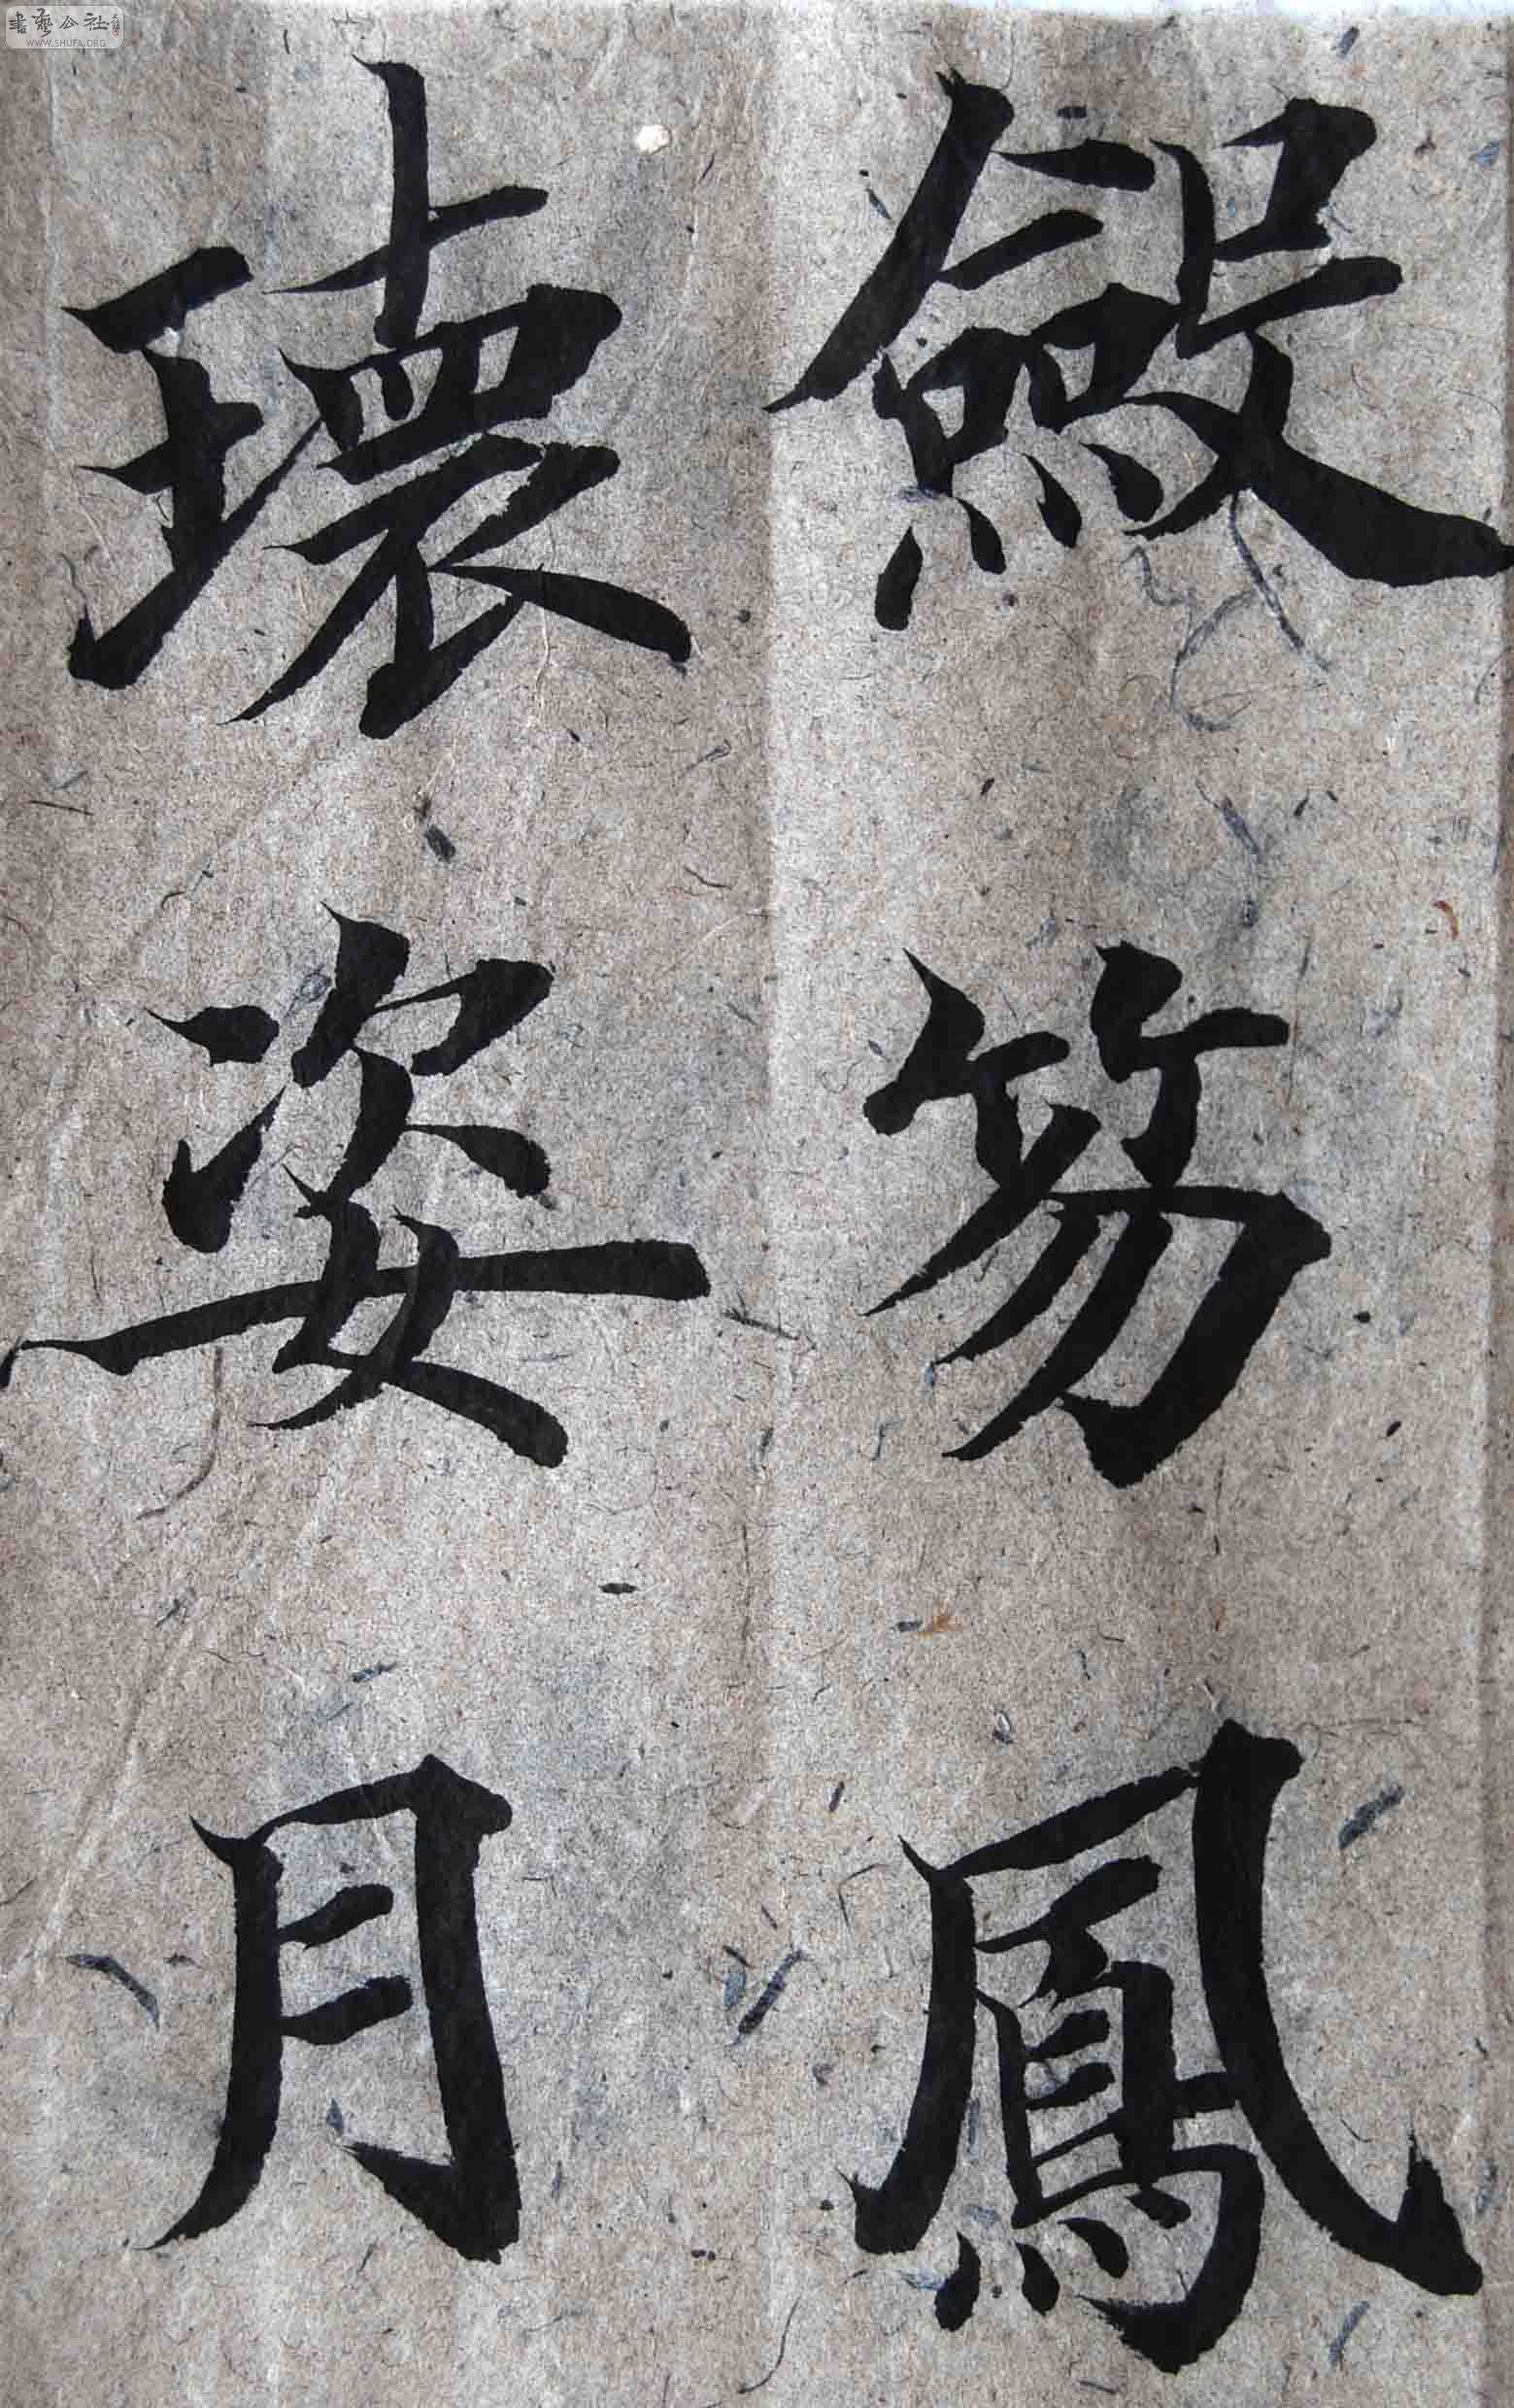 書藝公社
WWW.SHUFA.ORG
斂笏鳳
瓌姿月